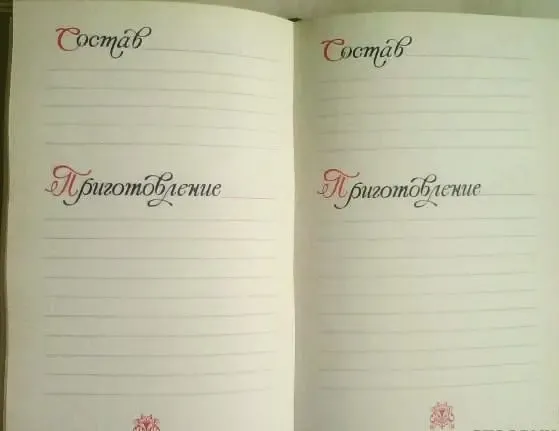 Состав
Приготовление
Состав
Приготовление